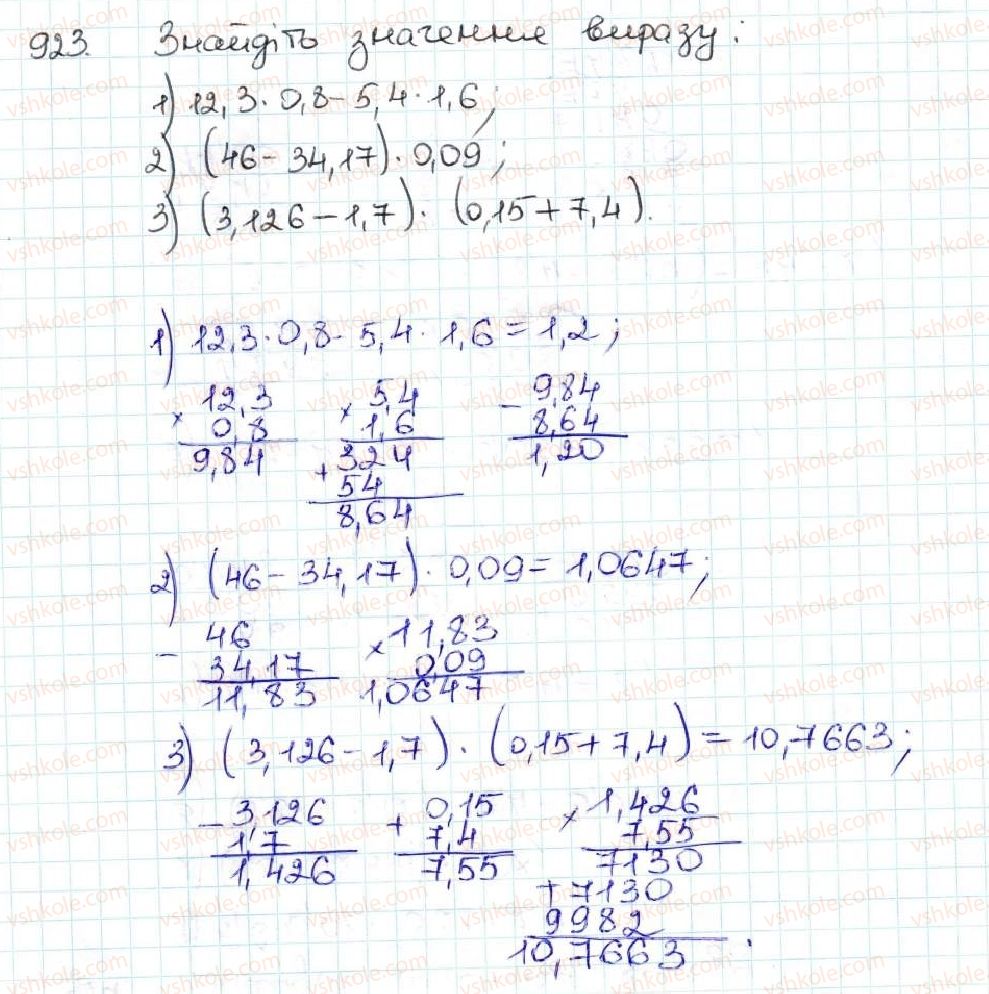 923. Знайдіть значення виразу:
1) 12,3·0,8-5,4·1,6;
2) (46-34,17)·0,09;
3) (3,126-1,7)·(0,15+7,4).
1) 12,3·0,8-5,4·1,6=1,2;
12,3 5,4 - 9,84
× 0,8 × 1,6 8,64
9,84 + 324 1,20
54
8,64
2) (46-34,17)·0,09=1,0647;
- 46 × 11,83
34,17 0,09
11,83 1,0647
3) (3,126-1,7)·(0,15+7,4)=10,7663;
- 3,126 + 0,15 × 1,426
1,7 7,4 7,55
1,426 7,55 7130
+ 7130
9982
10,7663.